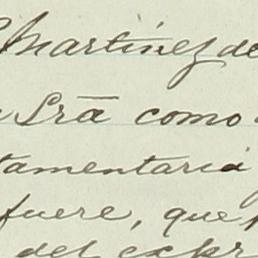 Martinez de
Srā como
tamentaria
fuere, que
del expr